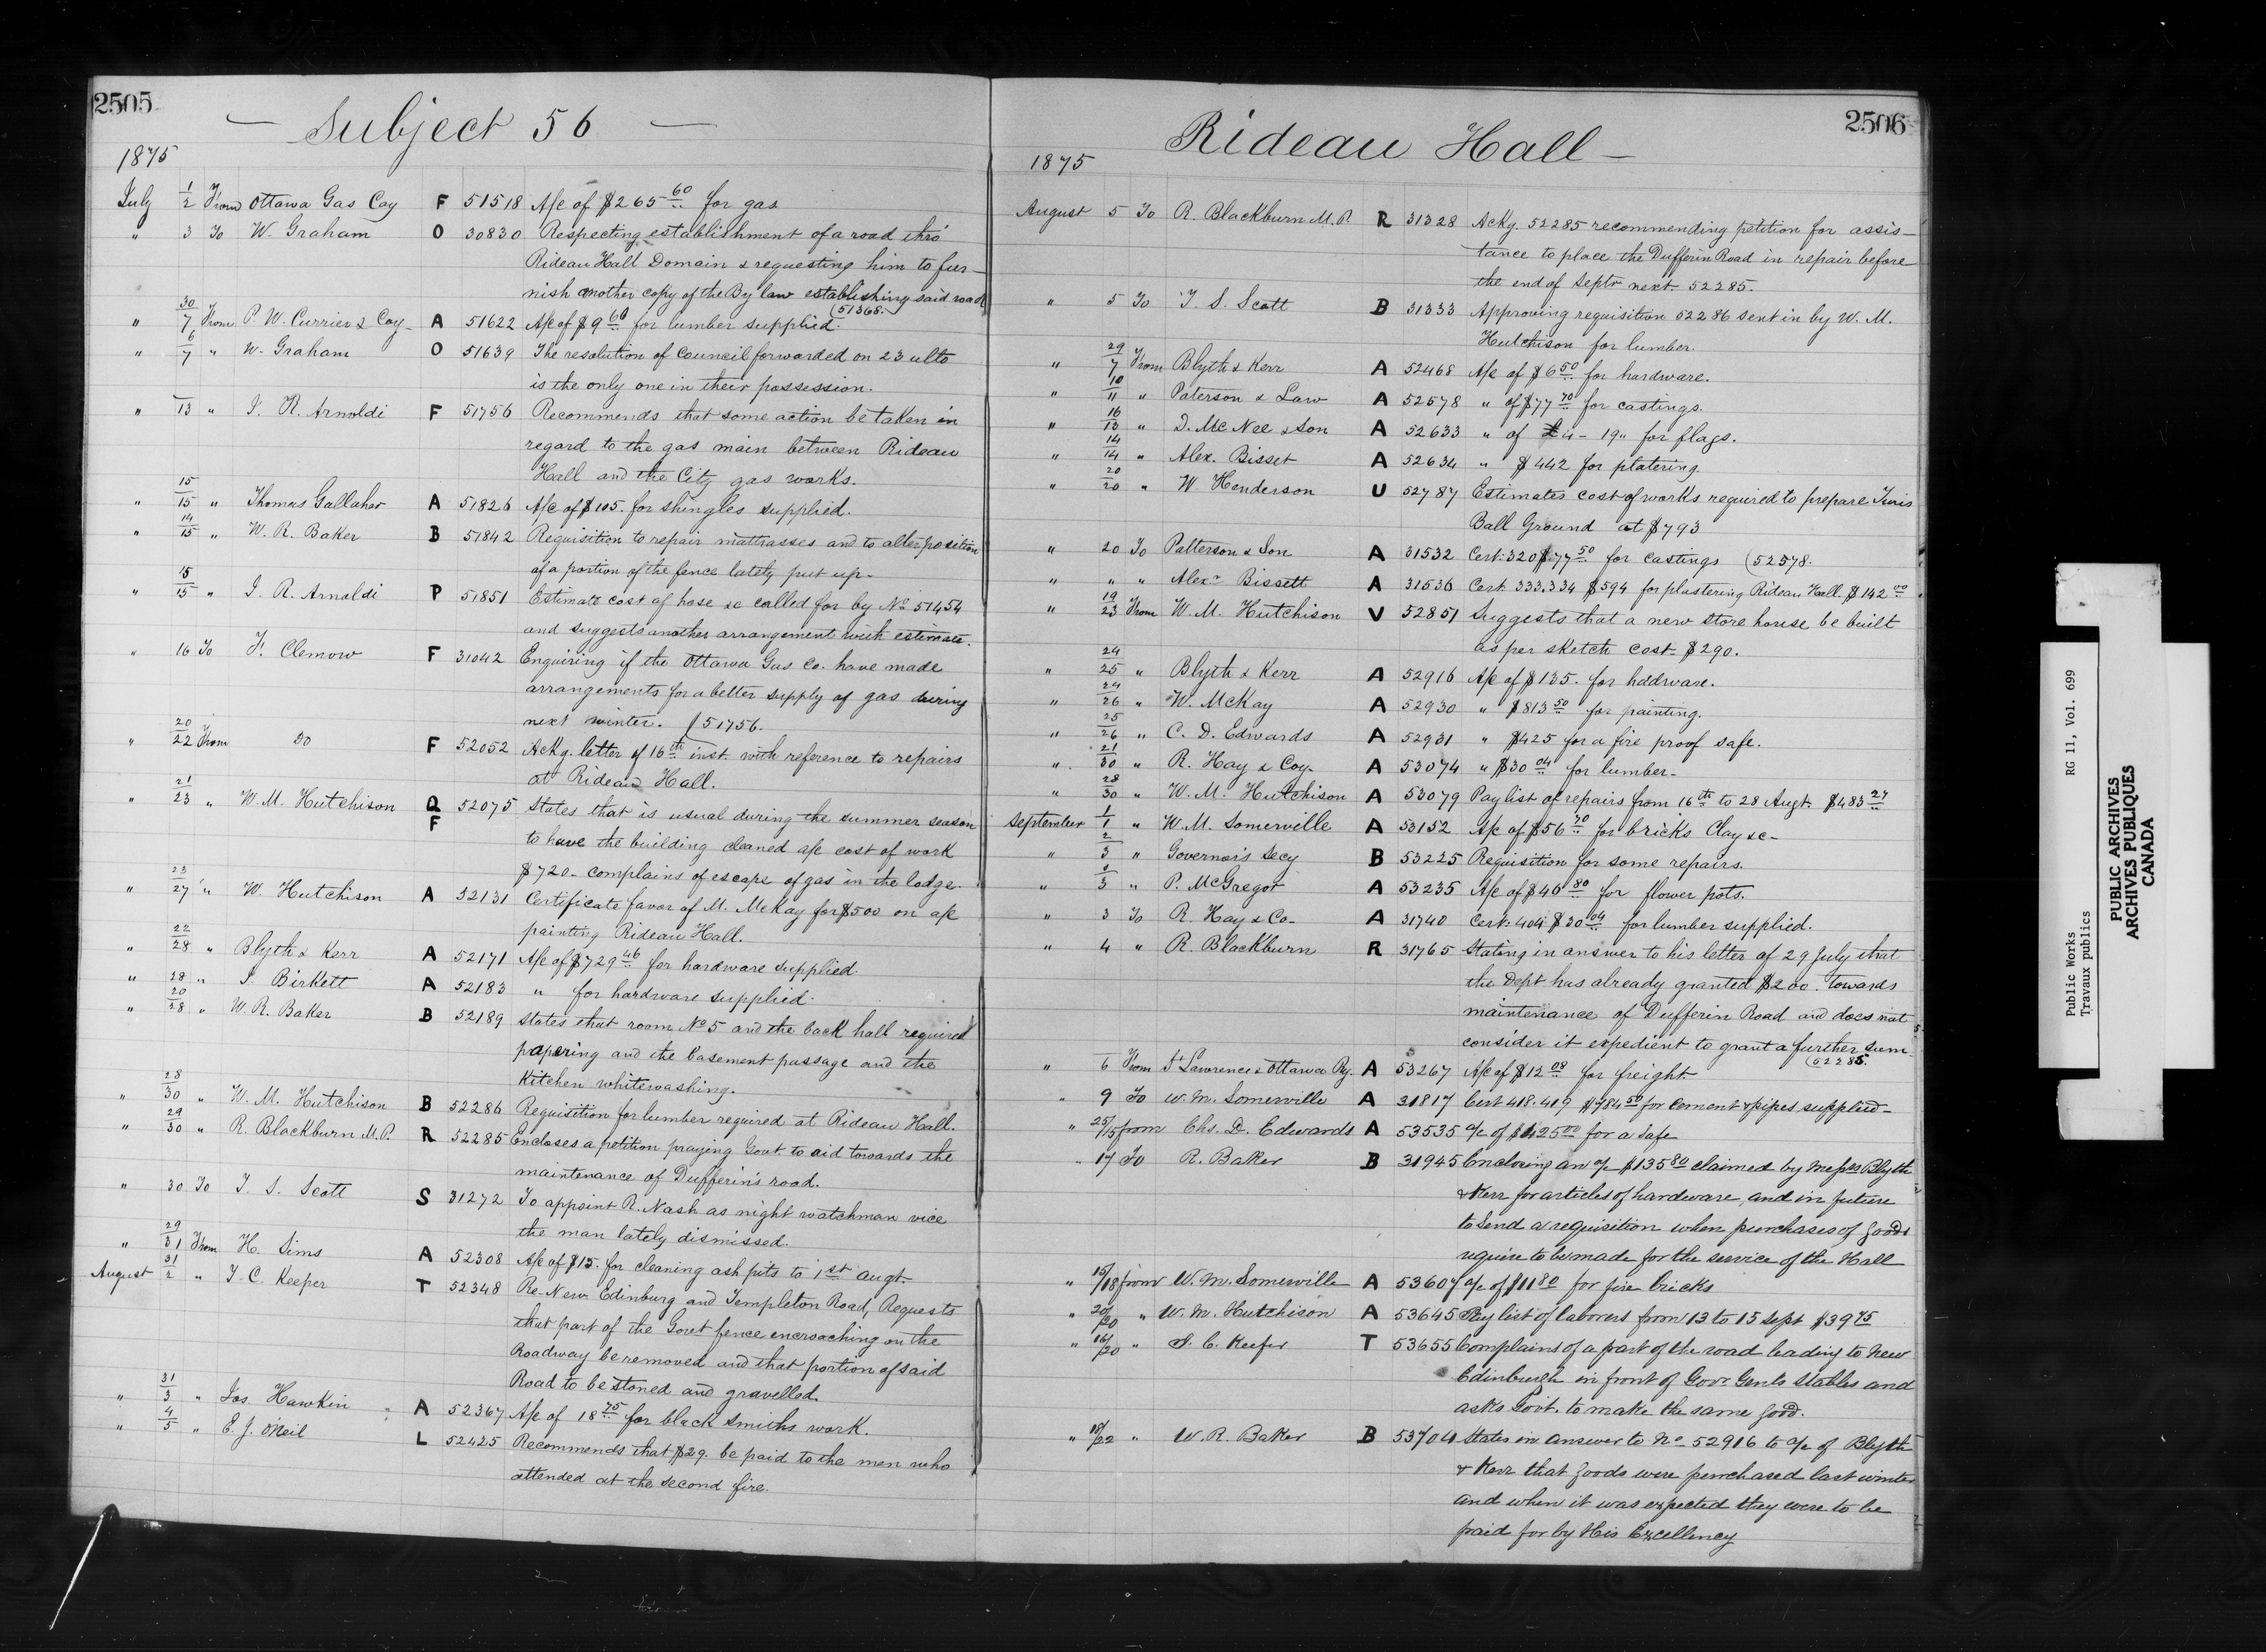 2505
— Subject 56 —
1875
July 1/2 From Ottawa Gas Coy F 51518 A/c of $265.60 for gas
" 3 To W. Graham O 30830 Respecting establishment of a road thro'
Rideau Hall Domain & requesting him to fur-
nish another copy of the By law establishing said road
(51365.
" 30/7 From P. W. Currier & Coy- A 51622 A/c of $9.60 for lumber supplied.
" 6/7 " W. Graham O 51639 The resolution of Council forwarded on 23 ulto
is the only one in their possession.
" 13 " J. R. Arnoldi F 51756 Recommends that some action be taken in
regard to the gas main between Rideau
Hall and the City gas works.
" 15/15 " Thomas Gallaher A 51826 A/c of $105. for shingles supplied.
" 14/15 " W. R. Baker B 51842 Requisition to repair mattrasses and to alter position
of a portion of the fence lately put up-
" 15/15 " J. R. Arnoldi P 51851 Estimate cost of hose &c called for by No 51454
and suggests another arrangement with estimate.
" 16 To F. Clemow F 31042 Enquiring if the Ottawa Gas Co. have made
arrangements for a better supply of gas during
next winter. (51756.
" 20/22 From Do F 52052 Ackg. letter of 16th inst. with reference to repairs
at Rideau Hall.
" 21/23 " W. M. Hutchison Q F 52075 States that is usual during the summer season
to have the building cleaned a/c cost of work
$720- complains of escape of gas in the lodge.
" 23/27 " W. Hutchison A 52131 Certificate favor of M. McKay for $500 on a/c
painting Rideau Hall.
" 22/28 " Blyth & Kerr A 52171 A/c of $729.46 for hardware supplied.
" 28 " J. Birkett A 52183 " for hardware supplied.
" 20/28 " W. R. Baker B 52189 States that room No 5 and the back hall required
papering and the basement passage and the
Kitchen whitewashing.
" 28/30 " W. M. Hutchison B 52286 Requisition for lumber required at Rideau Hall.
" 29/30 " R. Blackburn M.P. R 52285 Encloses a petition praying Govt to aid towards the
maintenance of Dufferin's road.
" 30 To T. S. Scott S 31272 To appoint R. Nash as night watchman vice
the man lately dismissed.
" 29/31 From H. Sims A 52308 A/c of $15. for cleaning ash pits to 1st augt.
August 31/2 " T. C. Keeper T 52348 Re-New Edinburg and Templeton Road, Requests
that part of the Govt fence encroaching on the
Roadway be removed and that portion of said
Road to be stoned and gravelled.
" 31/3 " Jos Hawkin A 52367 A/c of 18.75 for black smiths work.
" 4/5 " E. J. O'Neil L 52425 Recommends that $29. be paid to the men who
attended at the second fire.
2506
Rideau Hall —
1875
August 5 To R. Blackburn M.P. R 31328 Ackg. 52285 recommending petition for assis-
tance to place the Dufferin Road in repair before
the end of Septr next. 52285.
" 5 To T. S. Scott B 31333 Approving requisition 52286 sent in by W. M.
Hutchison for lumber.
" 29/7 From Blyth & Kerr A 52468 A/c of $6.50 for hardware.
" 10/11 " Paterson & Law A 52578 " of $77.70 for castings.
" 16/13 " D. McNee & Son A 52633 " of £4-19" for flags.
" 14/14 " Alex. Bisset A 52634 " $442 for platering.
" 20/20 " W Henderson U 52787 Estimates cost of works required to prepare Tinis
Ball Ground at $793
" 20 To Patterson & Son A 31532 Cert: 320 $77.50 for castings (52578.
" " " Alexr Bissett A 31536 Cert. 333.334 $594 for plastering Rideau Hall. $142.00
" 19/23 From W. M. Hutchison V 52851 Suggests that a new store house be built
as per sketch cost- $290.
" 24/25 " Blyth & Kerr A 52916 A/c of $135. for haddware.
" 24/26 " W. McKay A 52930 " $813.50 for painting.
" 25/26 " C. D. Edwards A 52931 " $425 for a fire proof safe.
" 21/30 " R. Hay & Coy- A 53074 " $30.04 for lumber-
" 28/30 " W. M. Hutchison A 53079 Pay list of repairs from 16th to 28 Augt. $483.27
September 1/1 " W. M. Somerville A 53152 A/c of $56.70 for bricks Clay &c-
" 2/3 " Governor's Secy B 53225 Requisition for some repairs.
" 3 " P. McGregor A 53235 A/c of $46.80 for flower pots.
" 3 To R. Hay & Co- A 31740 Cert: 404 $30.04 for lumber supplied.
" 4 " R. Blackburn R 31765 Stating in answer to his letter of 29 July that
the Dept has already granted $200. towards
maintenance of Dufferin Road and does not
consider it expedient to grant a further sum
(52285.
" 6 From St Lawrence & Ottawa Ry. A 53267 A/c of $12.08 for freight.
" 9 To W. M. Somerville A 31817 Cert 418.419 $784.50 for Cement & pipes supplied-
" 25/15 from Chs. D. Edwards A 53535 a/c of $425.00 for a Safe
" 17 To R. Baker B 31945 Enclosing an a/c $135.80 claimed by Messrs Blyth
& Kerr for articles of hardware, and in future
to send a requisition when purchases of goods
require to be made for the service of the Hall
" 15/18 from W. M. Somerville A 53607 a/c of $11.80 for fire bricks
" 20/20 " W. M. Hutchison A 53645 Pay list of laborers from 13 to 15 Sept $39.75
" 16/20 " T. C. Keefer T 53655 Complains of a part of the road leading to New
Edinburgh in front of Govr Genls Stables and
asks Govt. to make the same good.
" 18/22 " W. R. Baker B 53704 States in answer to No- 52916 to a/c of Blyth
& Kerr that goods were purchased last winter
and when it was expected they were to be
paid for by His Excellency
Public Works RG 11, Vol. 699
Travaux publics
PUBLIC ARCHIVES
ARCHIVES PUBLIQUES
CANADA